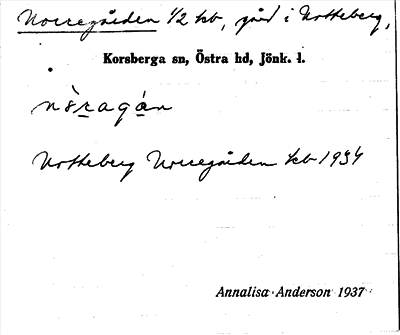 Norregården 1/2 kb, gård i Notteberg,
Korsberga sn, Östra hd, Jönk. l.
nòragán
Notteberg Norregården kb 1934
Annalisa Anderson 1937